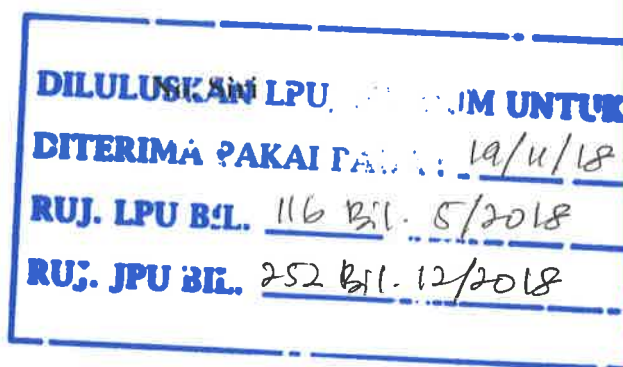 DILULUSKAN LPU, UM UNTUK
DITERIMA PAKAI PADA : 19/11/18
RUJ. LPU BIL. 116 Bil. 5/2018
RUJ. JPU BIL. 252 Bil. 12/2018